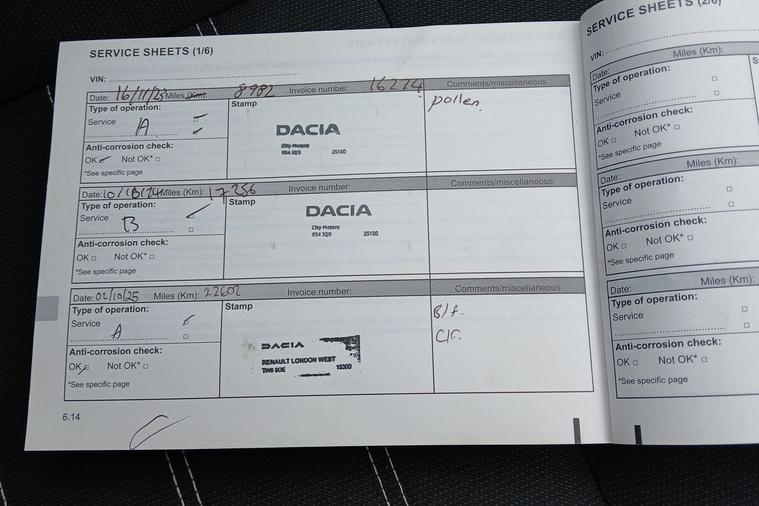 SERVICE SHEETS (1/6)
VIN:
Date: 16/11/23 Miles (Km): 8982 Invoice number: 16274 Comments/miscellaneous
Type of operation: Stamp pollen
Service A
DACIA
City Motors
BS4 3QS 25100
Anti-corrosion check:
OK Not OK*
*See specific page
Date: Miles (Km): 17256 Invoice number: Comments/miscellaneous
Type of operation: Stamp
Service B
DACIA
City Motors
25100
Anti-corrosion check:
OK Not OK*
*See specific page
Date: 02/10/25 Miles (Km): 22602 Invoice number: Comments/miscellaneous
Type of operation: Stamp B/f.
Service A C/F.
DACIA
RENAULT LONDON WEST
Anti-corrosion check:
OK Not OK*
*See specific page
6.14
SERVICE SHEETS (2/6)
VIN:
Date: Miles (Km):
Type of operation: S
Service
Anti-corrosion check:
OK Not OK*
*See specific page
Date: Miles (Km):
Type of operation:
Service
Anti-corrosion check:
OK Not OK*
*See specific page
Date: Miles (Km):
Type of operation:
Service
Anti-corrosion check:
OK Not OK*
*See specific page